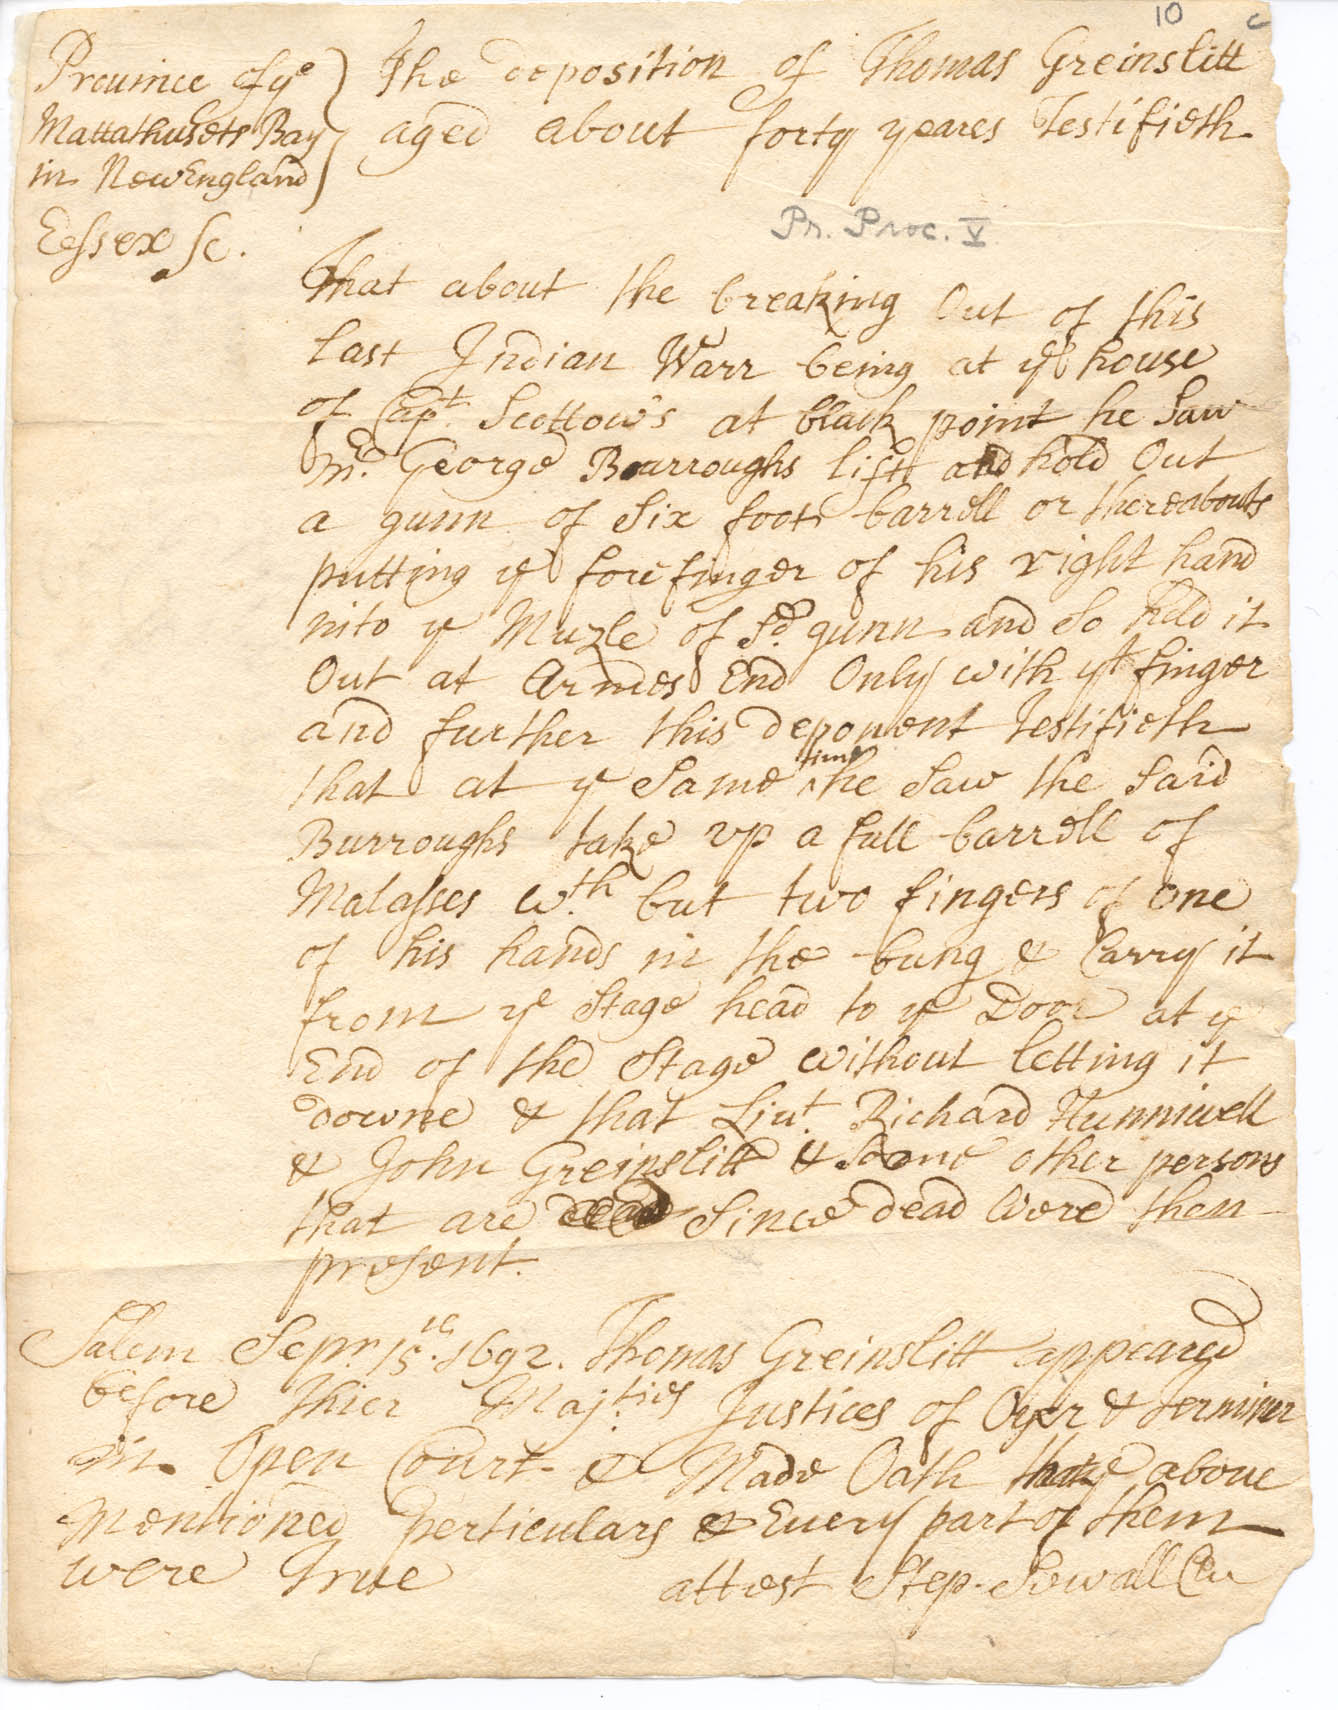 10 c
Prouince of yᵉ
Mattathusets Bay
in NewEngland
Essex sc.
The deposition of Thomas Greinslitt
aged about forty yeares Testifieth
Pr. Proc. V
That about the breaking Out of this
last Indian Warr being at yᵉ house
of Capᵗ. Scottow's at black point he Saw
mʳ. George Burroughs lift and hold Out
a gunn of Six foot barrell or thereabouts
putting yᵉ forefinger of his right hand
into yᵉ Muzle of sᵈ. gunn and So held it
Out at Armes End Only with yᵗ finger
and further this deponent Testifieth
that at yᵉ Same ^time he Saw the Said
Burroughs take vp a full barrell of
Malasses wᵗʰ. but two fingers of one
of his hands in the bung & Carry it
from yᵉ Stage head to yᵉ Door at yᵉ
End of the Stage without letting it
downe & that Liuᵗ. Richard Hunniwell
& John Greinslitt & Some other persons
that are Since dead Were then
present.
Salem Sepʳ 15ᵗʰ. 1692. Thomas Greinslitt appeared
before thier Majᵗⁱᵉˢ Justices of Oyer & terminer
in Open Court & Made Oath that yᵉ aboue
mentioned perticulars & Euery part of them
were True
attest Step. Sewall Cler